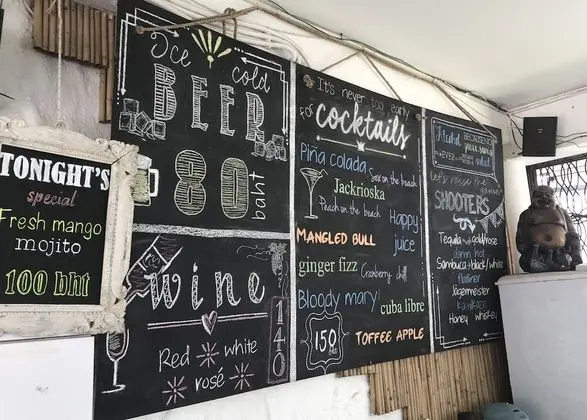 TONIGHT'S
special
Fresh mango
mojito
100 bht
Ice cold
BEER
80 baht
wine
140
Red white
rosé
It's never too early
for cocktails
Piña colada
Sex on the beach
Jackrioska
Peach on the beach
Happy juice
MANGLED BULL
ginger fizz
Cranberry chill
Bloody mary
cuba libre
150
TOFFEE APPLE
Alcohol
BECAUSE NO
GREAT STORY
EVER
salad
Let's raise the
SHOOTERS
Tequila gold/rose
Sambuca black/white
Jägermeister
Kamikaze
Honey whiskey